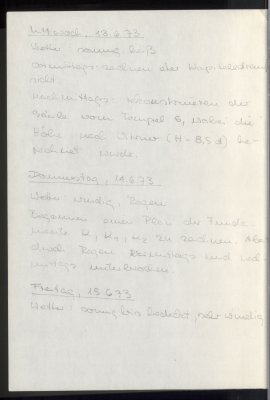 Mittwoch, 13.6.73
Wetter: sonnig, heiß
Vormittags: zeichnen der
nicht.
nachmittags: rekonstruieren der
Säule vom Tempel G, wobei die
Höhe nach Vitruv (H = 8,5 d) be-
rechnet wurde.
Donnerstag, 14.6.73
Wetter: windig, Regen
Begonnen einen Plan der Funda-
mente H, H1, H2 zu zeichnen.
durch Regen vormittags und nach-
mittags unterbrochen.
Freitag, 15.6.73
Wetter: sonnig bis bedeckt, sehr windig